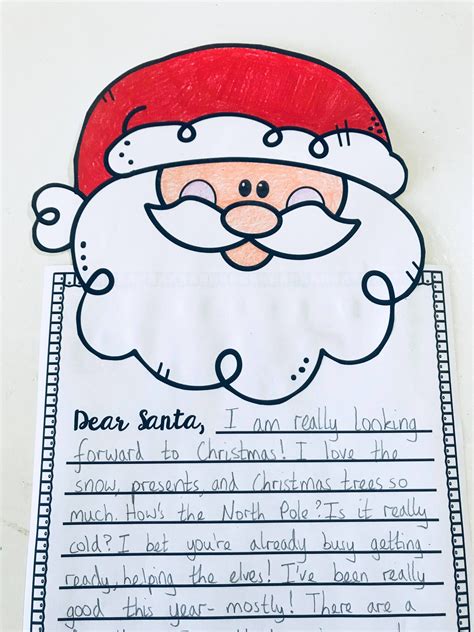 Dear Santa, I am really looking
forward to Christmas! I love the
snow, presents, and Christmas trees so
much. How's the North Pole? Is it really
cold? I bet you're already busy getting
ready, helping the elves! I've been really
good this year- mostly! There are a